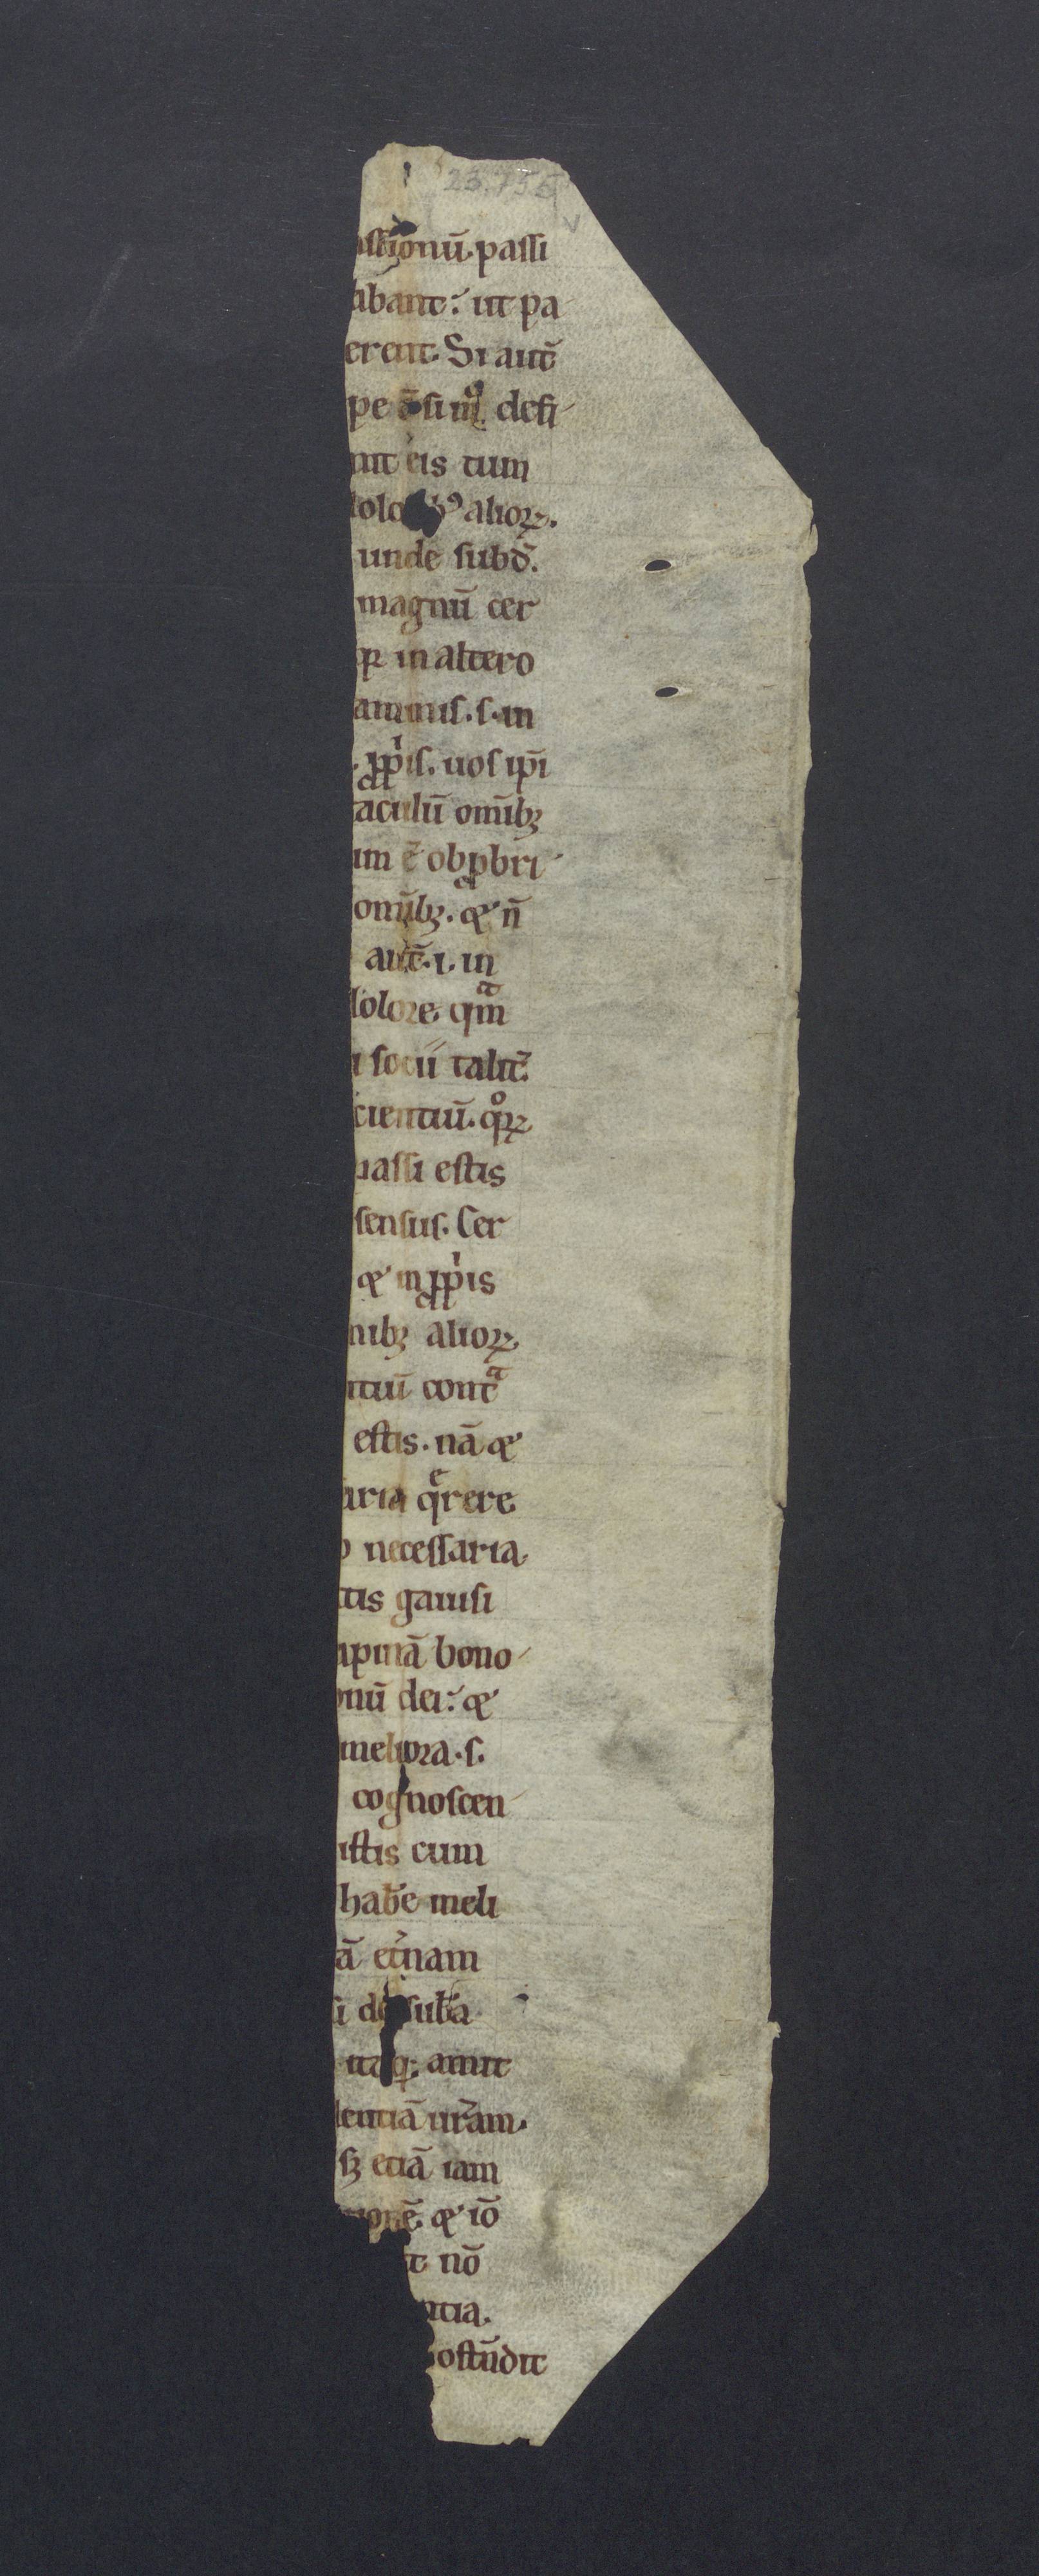 23.735
v
assionū. passi
abant: ut pa
erent. Si autē
pe ē si mͦ defi
nit eis tum
dolo bꝰ alioꝝ.
unde subd̄.
magnū cer
qꝛ in altero
animis. s. in
ꝓpͥis. uos ip̄i
taculū om̄ibꝫ
um ē obꝓbri
om̄ibꝫ. ⁊ n̄
autē. i. in
dolore qᵃm
i socii talit̄.
cientiū. qͦꝝ
passi estis
sensus. Cer
⁊ in ꝓpͥis
nibꝫ alioꝝ.
ntiū contᵃ
estis. nā ⁊
aria qͤrere
o necessaria.
ctis gauisi
apinā bono
onū dei: ⁊
meliora. s.
cognoscen
istis cum
hab̄e meli
ā et̄nam
si de sub̄a
utiqꝫ amit
dentiā ur̄am.
sꝫ etiā iam
ionē. ⁊ iō
t nō
ntia.
ostn̄dit